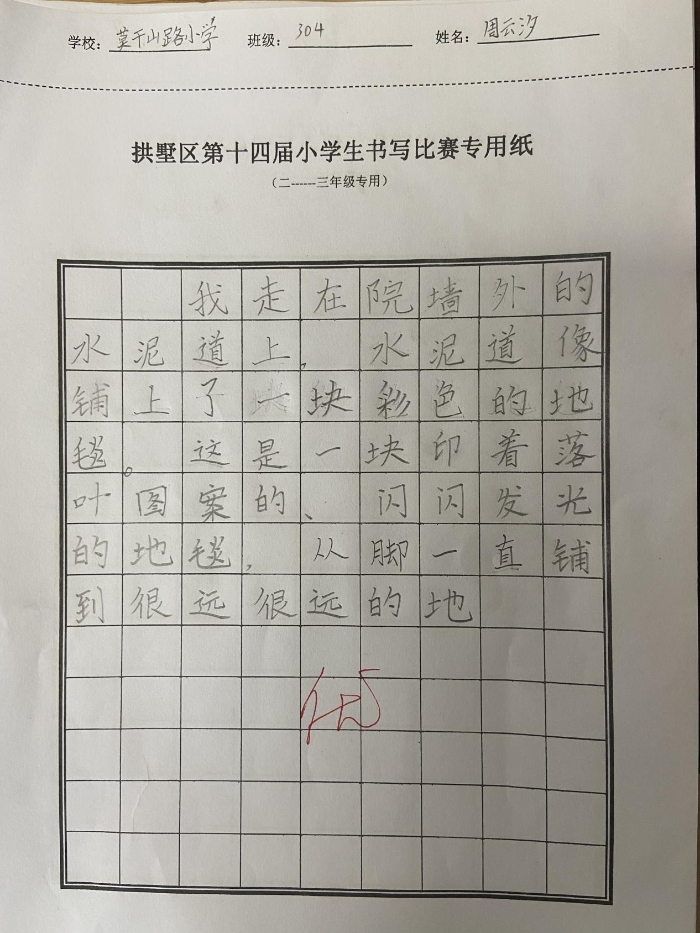 学校: 莫干山路小学 班级: 304 姓名: 周云汐
拱墅区第十四届小学生书写比赛专用纸
（二------三年级专用）
我走在院墙外的
水泥道上,水泥道像
铺上了一块彩色的地
毯。这是一块印着落
叶图案的、闪闪发光
的地毯,从脚一直铺
到很远很远的地
优